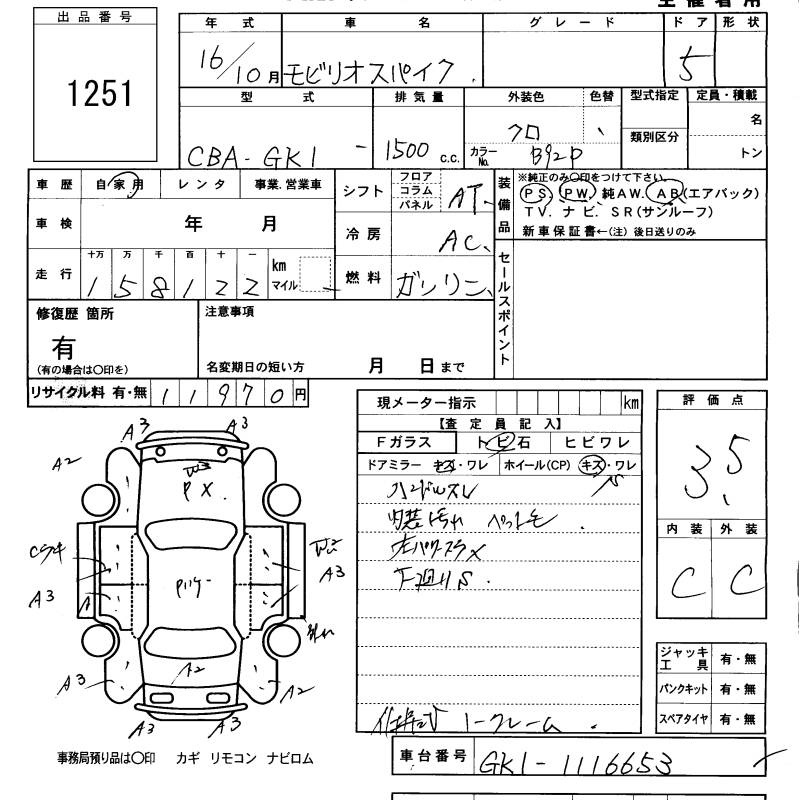 主催者用
出品番号
1251
年式 車名 グレード ドア 形状
16/10月 モビリオスパイク 5
型式 排気量 外装色 色替 型式指定 定員・積載
CBA-GK1 1500 c.c. クロ 類別区分 名
カラーNo. B92P トン
車歴 自家用 レンタ 事業.営業車
シフト フロア コラム パネル AT
装備品 ※純正のみ〇印をつけて下さい。
PS. PW. 純AW. AB(エアバック)
TV. ナビ. SR(サンルーフ)
新車保証書←(注) 後日送りのみ
車検 年 月
冷房 AC
走行 十万 万 千 百 十 一 km マイル
158122
燃料 ガソリン
セールスポイント
修復歴 箇所
有
(有の場合は〇印を)
注意事項
名変期日の短い方 月 日まで
リサイクル料 有・無 11970円
現メーター指示 km
【査定員記入】
Fガラス トビ石 ヒビワレ
ドアミラー キズ・ワレ ホイール(CP) キズ・ワレ
ハンドルスレ
内装汚れ ペット毛
左パワスラ×
下廻りS
ノークレーム
評価点
3.5
内装 外装
C C
ジャッキ工具 有・無
パンクキット 有・無
スペアタイヤ 有・無
A3 A3
A2
PX
A3
A3
A2
A3
A2
A3 A3
事務局預り品は〇印 カギ リモコン ナビロム
車台番号 GK1-1116653